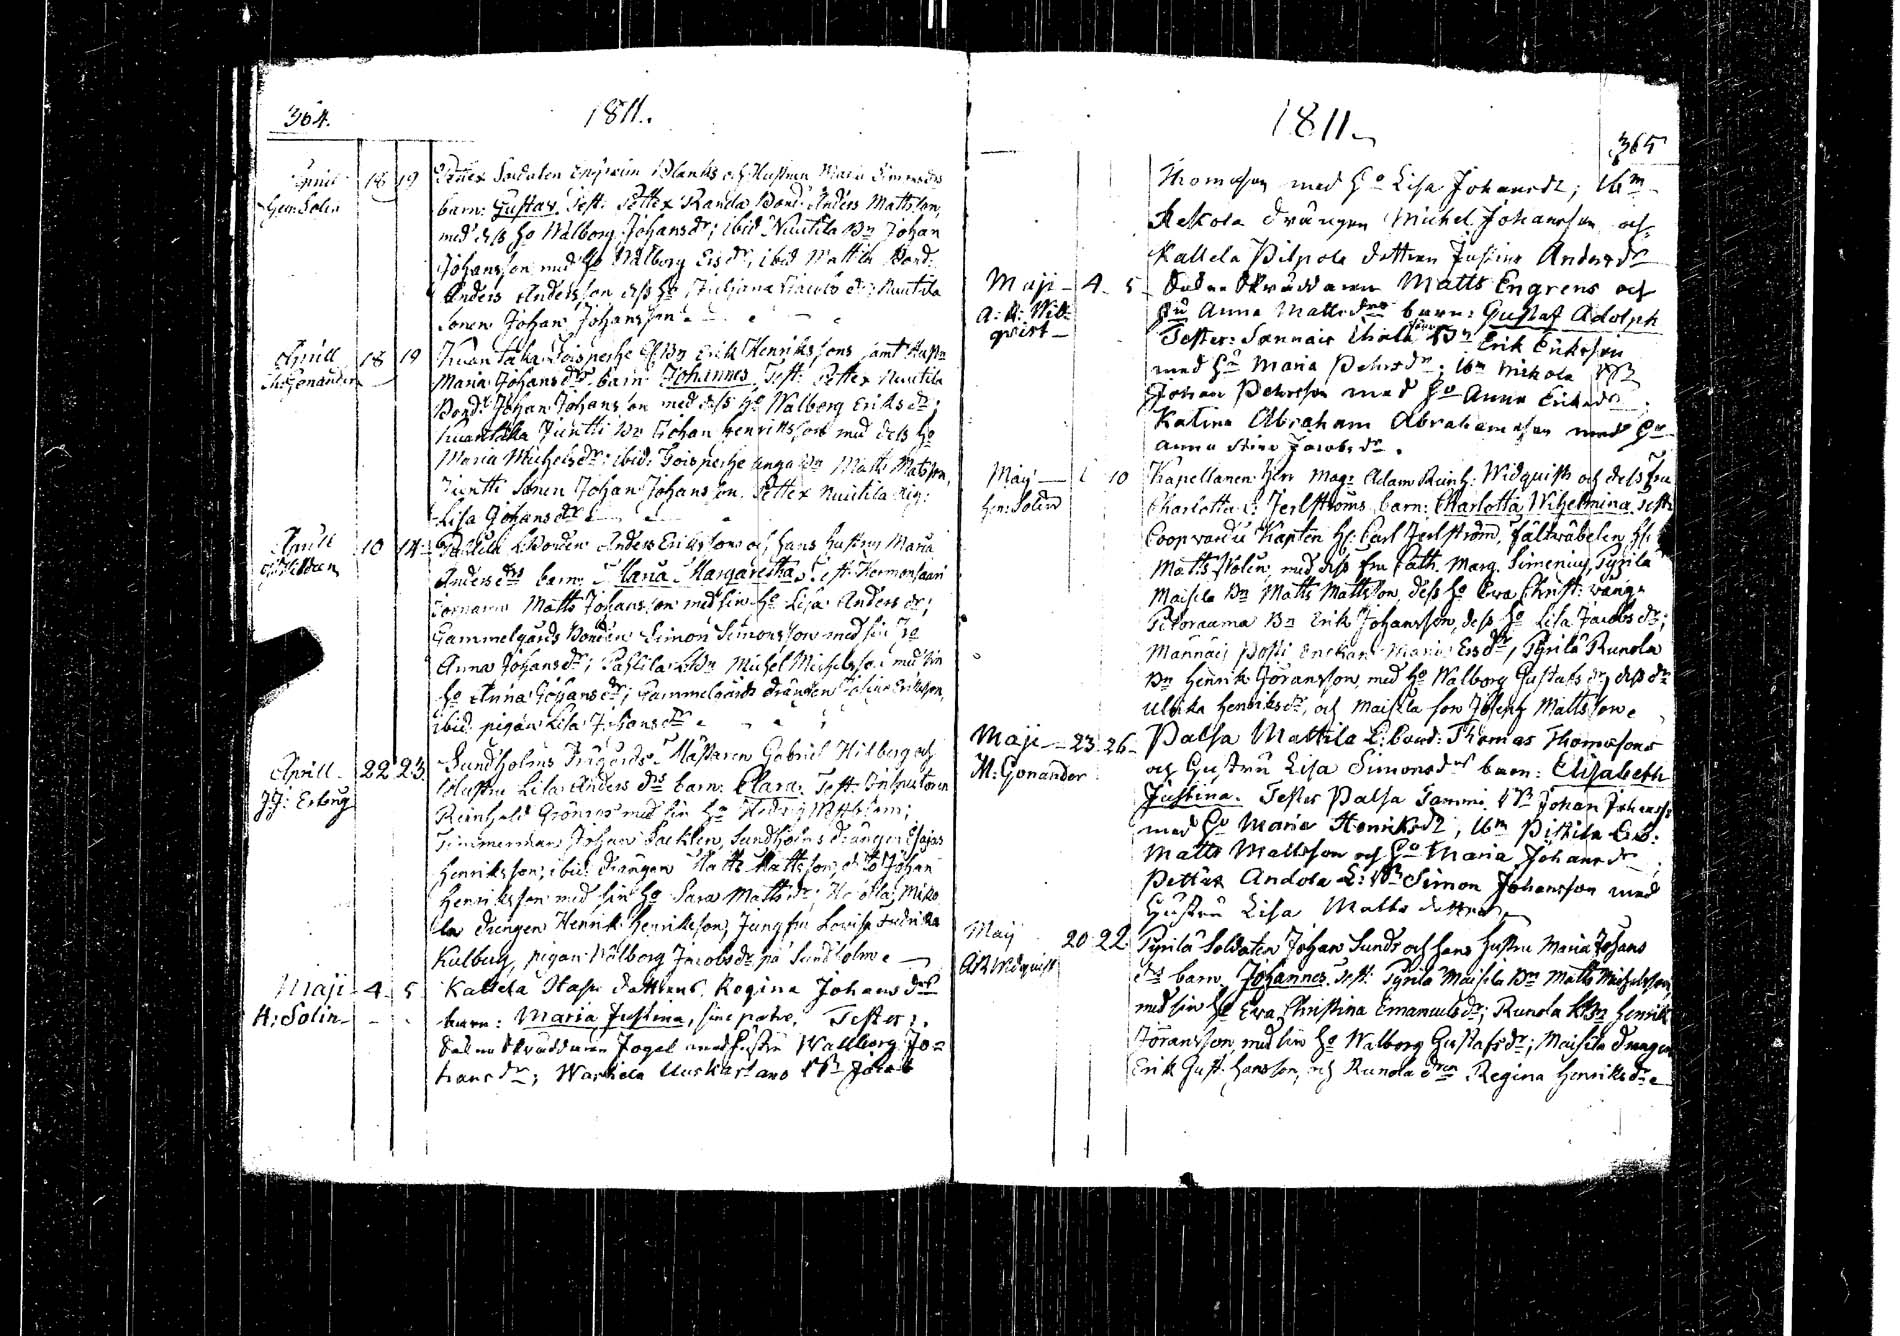 364.
1811.
April 18 19 Pettex Soldaten Blanks och Hustrun Maria Simonsdrs
Hen: Solin barn: Gustav. Test: Pettex Randa Bond: Anders Mattsson,
med dess Ho Walborg Johansdr; ibid Nuutila Bn Johan
Johansson med Ho Walborg Ersdr, ibid Mattila Bond:
Anders Andersson dess Ho Juliana Jacobs dr; Nuutila
Sonen Johan Johansson.
Aprill 18 19 Erik Henrikssons samt Hustr
Gonander Maria Johansdrs barn: Johannes, Test: Pettex Nuutila
Bond: Johan Johansson med dess Ho Walborg Eriksdr;
Juntti Bn Johan Henriksson med dess Ho
Maria Michelsdr; ibid: unga Bn Matts Matsson,
Juntti Sonen Johan Johansson, Pettex Nuutila Pig:
Lisa Johansdr
Aprill 10 14 Pahlila Bonden Anders Erikssons och hans hustrus Maria
Andersdrs barn: Maria Margaretha, Test: Hermonsaari
Matts Johansson med sin Ho Lisa Andersdr;
Gammelgårds Bonden Simon Simonsson med sin Ho
Anna Johansdr; Pahlila Bn Michel Michelsson med sin
Ho Anna Johansdr; Gammelgårds drängen Eriksson,
ibid: pigan Lisa Johansdr
Aprill 22 23 Sundholms Trägårds Mästaren Gabriel Hilberg och
JJ: Erleng Hustru Lisa Anders drs barn: Clara. Test: Inspectoren
Reinhold Grönros med sin Ho
Timmerman Johan Sacklen, Sundholms drängen Esajas
Henriksson; ibid: drängen Matts Mattsson, dito Johan
Henriksson med sin Ho Sara Mattsdr; Miko
la drengen Henrik Henriksson, Jungfru Lovisa Fredrika
Kulberg, pigan Walborg Jacobsdr på Sundholm
Maji 4 5 Kallela dottrens Regina Johansdrs
H: Solin barn: Maria Justina, sine patre. Tester:
Skräddaren Fogel med hustru Wallborg Jo=
hansdr; Warhela Bn Jacob
1811
365
Thomasson med Ho Lisa Johansdr; ibm
Rekola drängen Michel Johansson och
Kallela Pilpola dottren Justina Andersdr
Maji 4 5 Skräddaren Matts Engrens och
A: R: Wid= Hu Anna Mattsdrs barn: Gustaf Adolph
qvist Tester: Sannais Bn Erik Eriksson
med Hu Maria Pehrsdr; ibm Mikola Bn
Johan Pehrsson med Ho Anna Eriksdr;
Katina Abraham Abrahamsson med Ho
Anna Stina Jacobsdr.
Maij 10 Kapellanen Herr Magr Adam Reinh: Widquists och dess fru
Hen: Solin Charlotta C: Jerlströms barn: Charlotta Wilhelmina, Test:
Kapten Hr: Carl Jerlström, fältwäbelen Hr:
Matts Nolin, med dess fru Cath. Marg. Simenius, Pyrilä
Maisila Bn Matts Mattsson, dess Ho Ewa Christ:
Bn Erik Johansson, dess Ho Lisa Jacobs dr;
Männäis Posti Enckan Maria Ersdr, Pyrilä Runola
Bn Henrik Göransson, med Ho Walborg Gustafs dr, dess dr
Ulrika Henriksdr, och Maisila son Joseph Mattsson
Maji 23 26 Palsa Mattila L: bond: Thomas Thomasons
M: Gonander och Hustru Lisa Simonsdrs barn: Elisabeth
Justina. Tester Palsa Tommi Bn Johan Johanss:
med Ho Maria Henriksdr, ibm Pistila
Matts Mattsson och Ho Maria Johansdr
Pettäx Andola L: Bn Simon Johansson med
Hustru Lisa Matts dotter
Maij 20 22 Pyrilä Soldaten Johan Sunds och hans hustru Maria Johans
AR Widquist drs barn, Johannes. Test: Pyrilä Maisila Bn Matts Michelsson,
med sin Ho Ewa Christina Emanuelsdr; Runola Bn Henrik
Göransson med sin Ho Walborg Gustafsdr; Maisila drengen
Erik Gust: Hansson, och Runola dren Regina Henriksdr